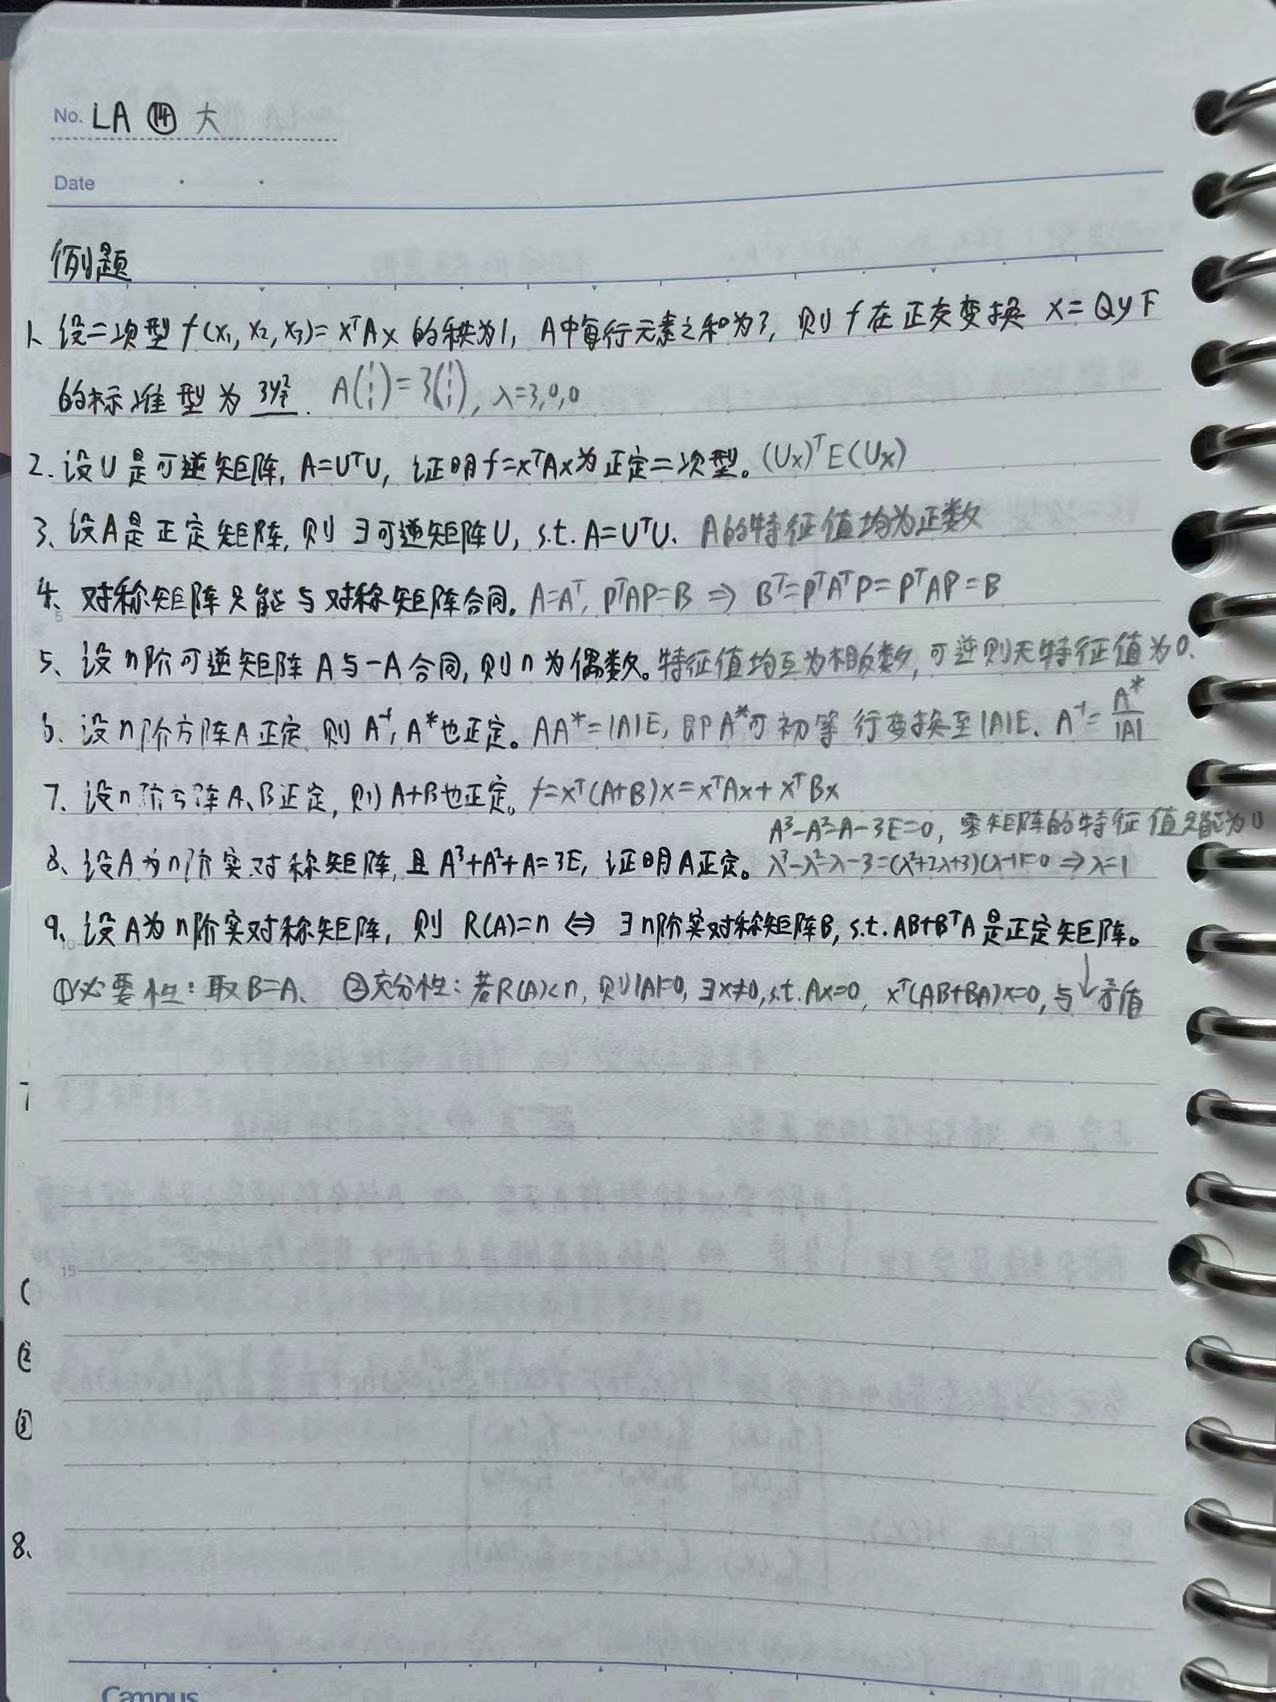 No. LA ⑭ 大
Date
例题
1、设二次型 f(x₁, x₂, x₃)= xᵀAx 的秩为1, A中每行元素之和为3, 则 f 在正交变换 x=Qy下
的标准型为 3y₁². A(1 1 1)=3(1 1 1), λ=3,0,0
2. 设U是可逆矩阵, A=UᵀU, 证明f=xᵀAx为正定二次型。(Ux)ᵀE(Ux)
3、设A是正定矩阵, 则∃可逆矩阵U, s.t. A=UᵀU. A的特征值均为正数
4、对称矩阵只能与对称矩阵合同。A=Aᵀ, PᵀAP=B ⇒ Bᵀ=PᵀAᵀP=PᵀAP=B
5
5、设n阶可逆矩阵A与-A合同,则n为偶数。特征值均互为相反数,可逆则无特征值为0.
6、设n阶方阵A正定 则A⁻¹, A*也正定。AA*=|A|E, 即A*可初等行变换至|A|E. A⁻¹=A*/|A|
7、设n阶方阵A、B正定, 则A+B也正定。f=xᵀ(A+B)x=xᵀAx+xᵀBx
A³-A²-A-3E=0, 零矩阵的特征值只能为0
8、设A为n阶实对称矩阵, 且A³+A²+A=3E, 证明A正定。λ³-λ²-λ-3=(λ²+2λ+3)(λ-1)=0 ⇒λ=1
9、设A为n阶实对称矩阵, 则 R(A)=n ⇔ ∃n阶实对称矩阵B, s.t. AB+BᵀA是正定矩阵。
10
①必要性: 取B=A. ②充分性: 若R(A)<n, 则|A|=0, ∃x≠0, s.t. Ax=0, xᵀ(AB+BA)x=0, 与↓矛盾
15
②
③
8、
Campus